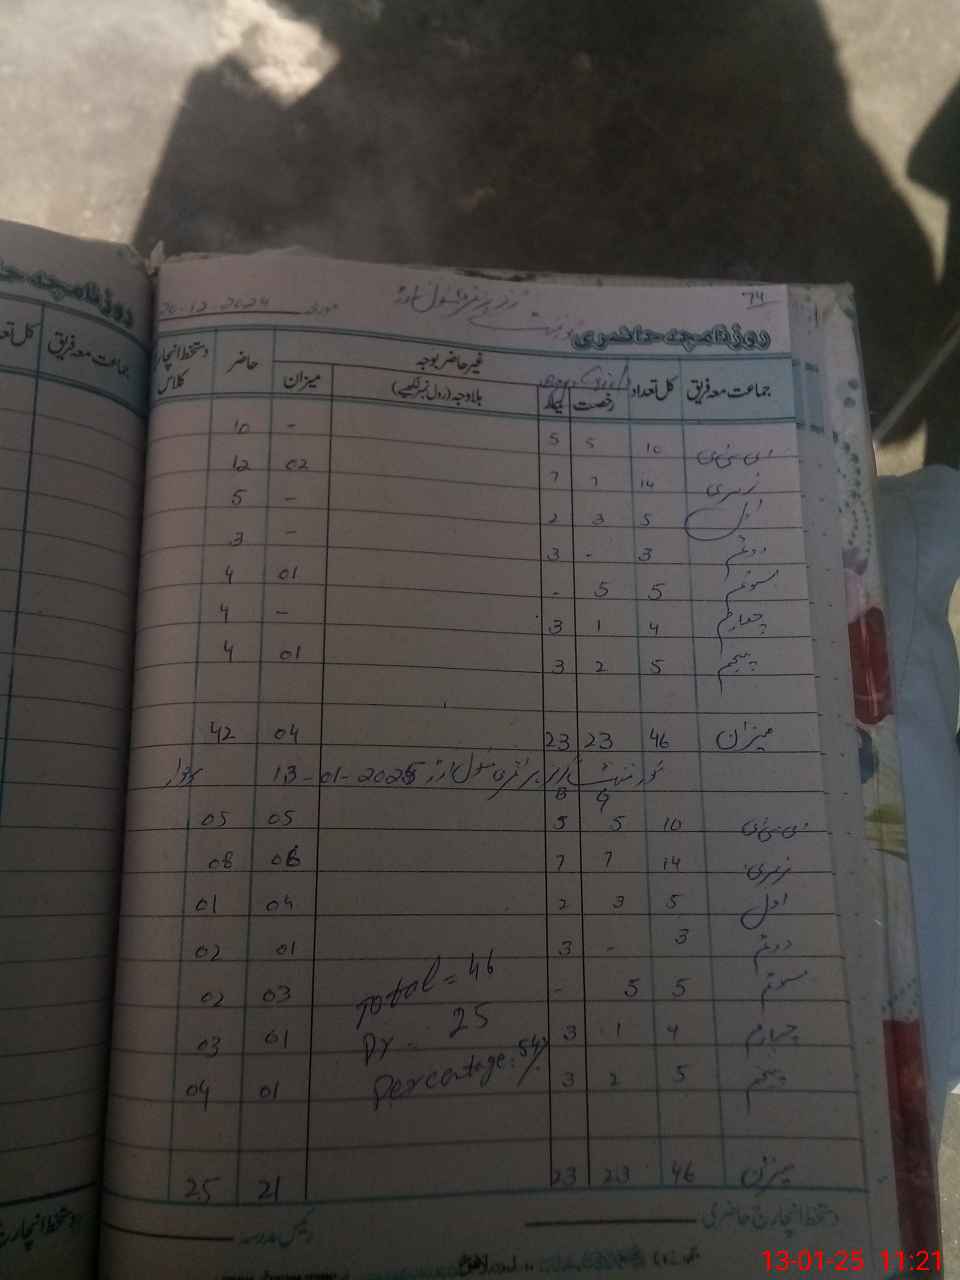 74
گورنمنٹ
مورخہ 20-12-2024
روزنامچہ حاضری
جماعت معہ فریق کل تعداد رخصت بیمار غیر حاضر بوجہ بلاوجہ (رول نمبر لکھیے) میزان حاضر دستخط انچارج کلاس
10 5 5 - 10
نرسری 14 7 7 02 12
اول 5 3 2 - 5
دوئم 3 - 3 - 3
سوئم 5 5 - 01 4
چہارم 4 1 3 - 4
پنجم 5 2 3 01 4
میزان 46 23 23 04 42
گورنمنٹ 13-01-2025 سوموار
G B
10 5 5 05 05
نرسری 14 7 7 06 08
اول 5 3 2 04 01
دوئم 3 - 3 01 02
سوئم 5 5 - 03 02
چہارم 4 1 3 01 03
پنجم 5 2 3 01 04
Total = 46
Pr - 25
Percentage: 54%
میزان 46 23 23 21 25
دستخط انچارج حاضری
رئیس مدرسہ
روزنامچہ حا
جماعت معہ فریق
کل تعد
13-01-25 11:21